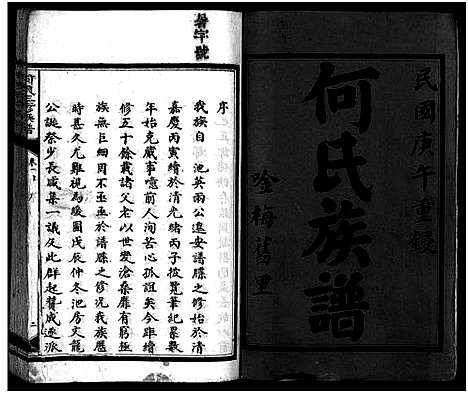 民國庚午重鋟
何氏族譜
唫梅舊里
暑字號
序
我族自　池英兩公遷安譜牒之修始於　清
嘉慶丙寅續於清光緒丙子披覽筆紀累數
年始克蕆事噫前人洵苦心孤詣矣今距續
修五十餘載諸父老以世變滄桑靡有窮亟
族無巨細罔不亟亟於譜牒之修況我族歷
時甚久尤難視為緩圖戊辰仲冬池房文龍
公誕祭少長咸集一議及此群起贊成遂派
卷一
二